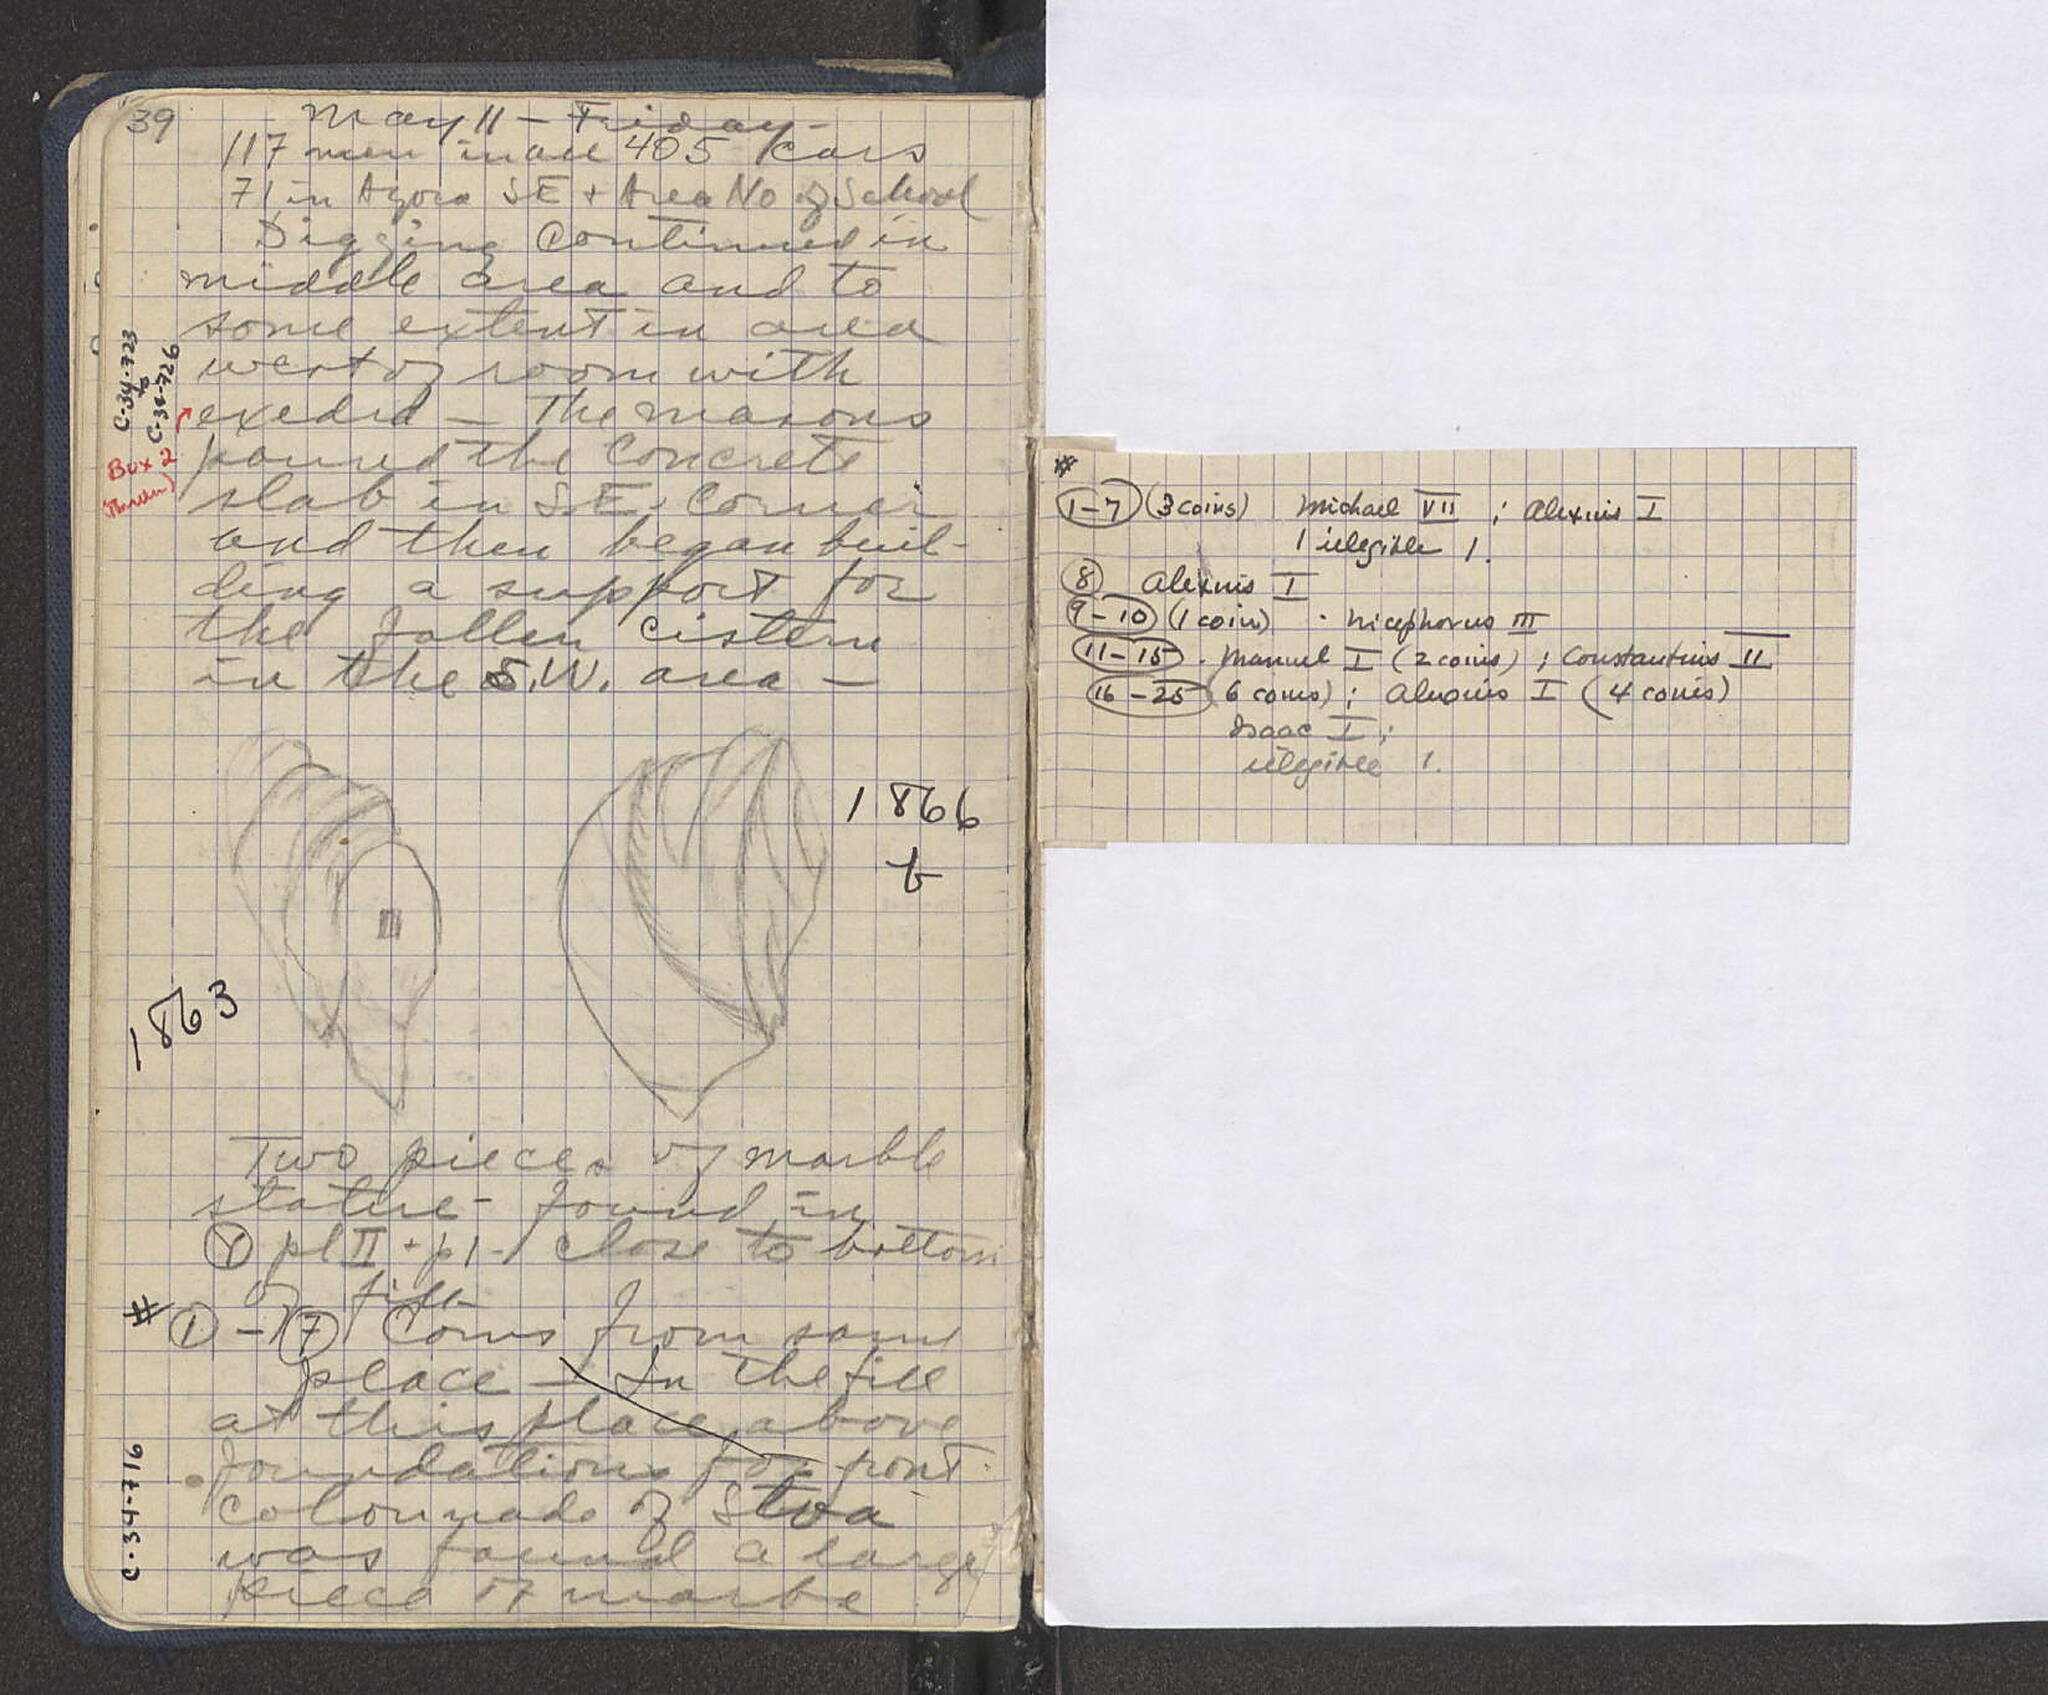 39
May 11 - Friday -
117 men in all 405 cars
71 in Agora SE + Area No of School
Digging continued in
middle area and to
some extent in area
west of room with
exedra - The masons
poured the concrete
slab in S.E. Corner
and then began buil-
ding a support for
the fallen cistern
in the S.W. area -
C-34-723
C-34-726
Box 2
1863
1866
b
Two pieces of marble
statue - found in
pl II + p 1 - close to bottom
of fill
# 1 - 7 Coins from same
place - In the fill
at this place above
foundations for front
colonnade of Stoa
was found a large
piece of marbe
C-34-716
#
1-7 (3 coins) Michael VII ; Alexius I
1 illegible 1.
8 Alexius I
9-10 (1 coin) . Nicephorus III
11-15 . Manuel I (2 coins) ; Constantius II
16-25 (6 coins) ; Alexius I (4 coins)
Isaac I ;
illegible 1.